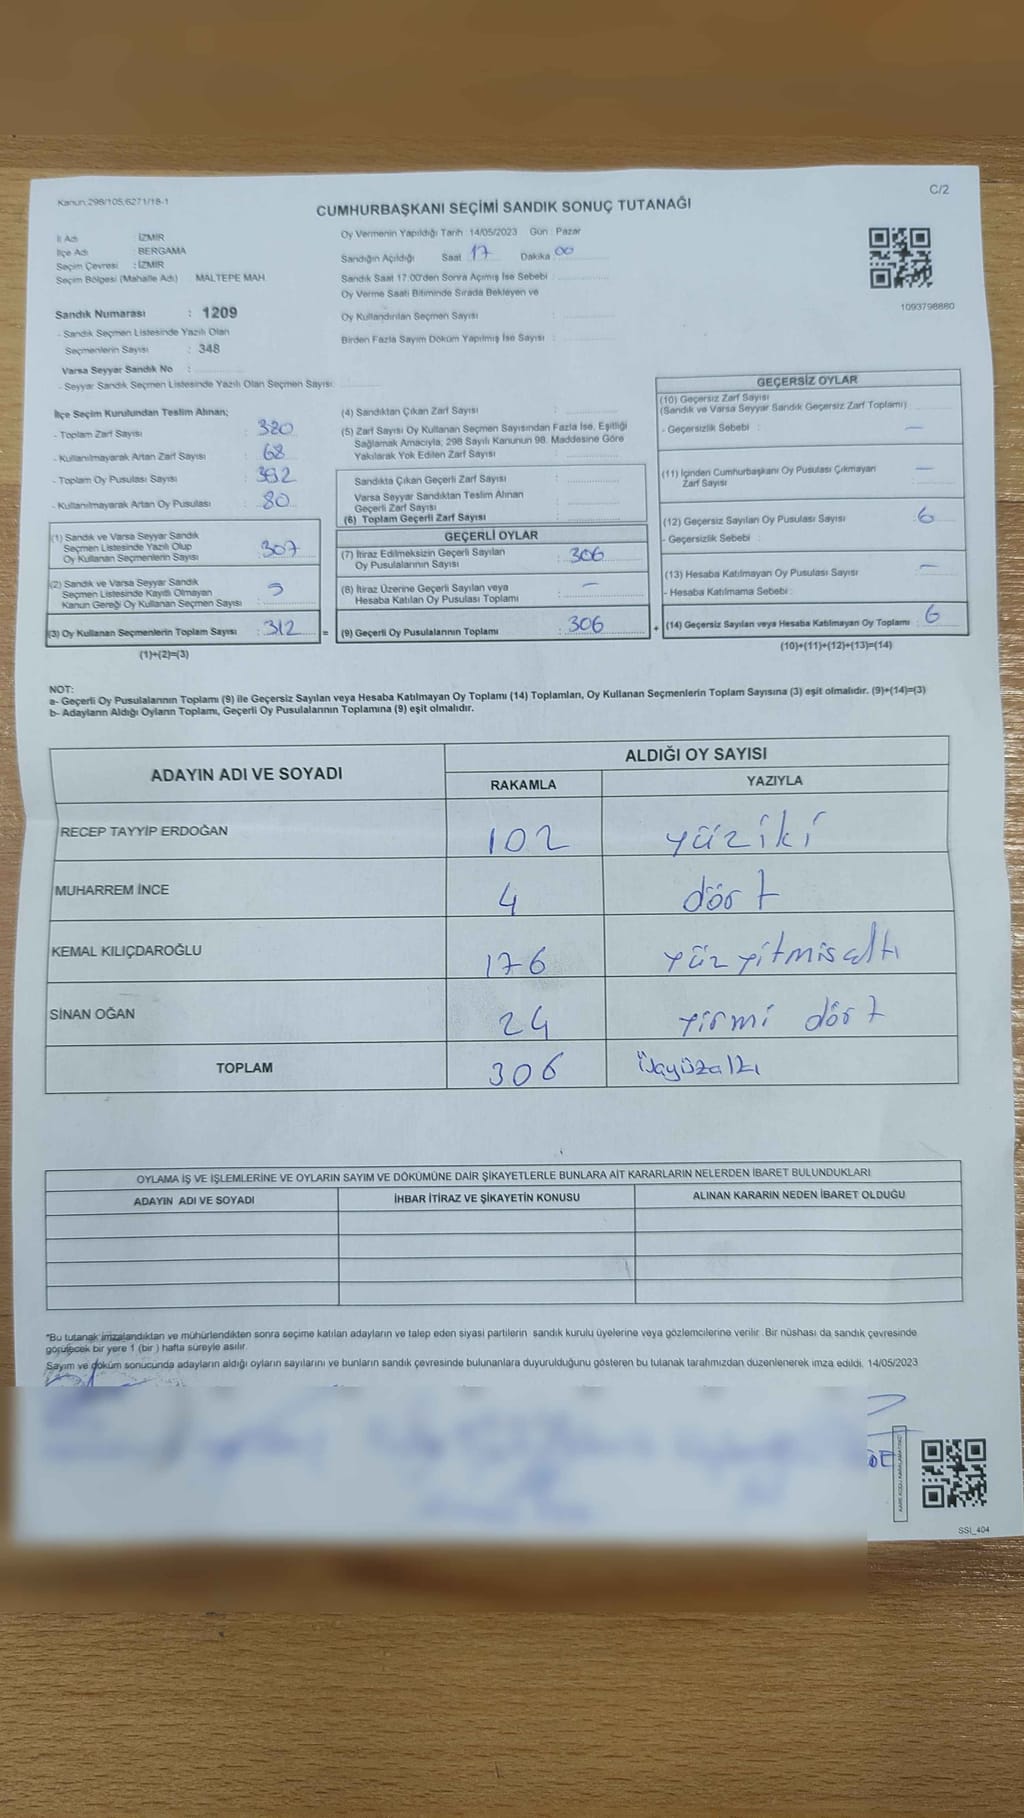 Kanun;298/105,6271/18-1
C/2
CUMHURBAŞKANI SEÇİMİ SANDIK SONUÇ TUTANAĞI
İl Adı : İZMİR
İlçe Adı : BERGAMA
Seçim Çevresi : İZMİR
Seçim Bölgesi (Mahalle Adı) MALTEPE MAH.
Oy Vermenin Yapıldığı Tarih :14/05/2023 Gün : Pazar
Sandığın Açıldığı Saat : 17 Dakika : 00
Sandık Saat 17.00'den Sonra Açımış İse Sebebi :
Oy Verme Saati Bitiminde Sırada Bekleyen ve
Oy Kullandırılan Seçmen Sayısı :
Birden Fazla Sayım Döküm Yapılmış İse Sayısı :
1093798880
Sandık Numarası : 1209
- Sandık Seçmen Listesinde Yazılı Olan
Seçmenlerin Sayısı : 348
Varsa Seyyar Sandık No :
- Seyyar Sandık Seçmen Listesinde Yazılı Olan Seçmen Sayısı:
İlçe Seçim Kurulundan Teslim Alınan;
- Toplam Zarf Sayısı : 380
- Kullanılmayarak Artan Zarf Sayısı : 68
- Toplam Oy Pusulası Sayısı : 392
- Kullanılmayarak Artan Oy Pusulası : 80
(1) Sandık ve Varsa Seyyar Sandık
Seçmen Listesinde Yazılı Olup
Oy Kullanan Seçmenlerin Sayısı : 307
(2) Sandık ve Varsa Seyyar Sandık
Seçmen Listesinde Kayıtlı Olmayan
Kanun Gereği Oy Kullanan Seçmen Sayısı : 5
(3) Oy Kullanan Seçmenlerin Toplam Sayısı : 312 =
(1)+(2)=(3)
(4) Sandıktan Çıkan Zarf Sayısı :
(5) Zarf Sayısı Oy Kullanan Seçmen Sayısından Fazla İse, Eşitliği
Sağlamak Amacıyla, 298 Sayılı Kanunun 98. Maddesine Göre
Yakılarak Yok Edilen Zarf Sayısı :
Sandıkta Çıkan Geçerli Zarf Sayısı :
Varsa Seyyar Sandıktan Teslim Alınan
Geçerli Zarf Sayısı :
(6) Toplam Geçerli Zarf Sayısı :
GEÇERLİ OYLAR
(7) İtiraz Edilmeksizin Geçerli Sayılan
Oy Pusulalarının Sayısı : 306
(8) İtiraz Üzerine Geçerli Sayılan veya
Hesaba Katılan Oy Pusulası Toplamı : –
(9) Geçerli Oy Pusulalarının Toplamı : 306 +
GEÇERSİZ OYLAR
(10) Geçersiz Zarf Sayısı
(Sandık ve Varsa Seyyar Sandık Geçersiz Zarf Toplamı)
- Geçersizlik Sebebi : –
(11) İçinden Cumhurbaşkanı Oy Pusulası Çıkmayan
Zarf Sayısı : –
(12) Geçersiz Sayılan Oy Pusulası Sayısı : 6
- Geçersizlik Sebebi :
(13) Hesaba Katılmayan Oy Pusulası Sayısı : –
- Hesaba Katılmama Sebebi :
(14) Geçersiz Sayılan veya Hesaba Katılmayan Oy Toplamı : 6
(10)+(11)+(12)+(13)=(14)
NOT:
a- Geçerli Oy Pusulalarının Toplamı (9) ile Geçersiz Sayılan veya Hesaba Katılmayan Oy Toplamı (14) Toplamları, Oy Kullanan Seçmenlerin Toplam Sayısına (3) eşit olmalıdır. (9)+(14)=(3)
b- Adayların Aldığı Oyların Toplamı, Geçerli Oy Pusulalarının Toplamına (9) eşit olmalıdır.
ADAYIN ADI VE SOYADI
ALDIĞI OY SAYISI
RAKAMLA YAZIYLA
RECEP TAYYİP ERDOĞAN 102 yüziki
MUHARREM İNCE 4 dört
KEMAL KILIÇDAROĞLU 176 yüzyitmisaltı
SİNAN OĞAN 24 yirmi dört
TOPLAM 306 üçyüzaltı
OYLAMA İŞ VE İŞLEMLERİNE VE OYLARIN SAYIM VE DÖKÜMÜNE DAİR ŞİKAYETLERLE BUNLARA AİT KARARLARIN NELERDEN İBARET BULUNDUKLARI
ADAYIN ADI VE SOYADI İHBAR İTİRAZ VE ŞİKAYETİN KONUSU ALINAN KARARIN NEDEN İBARET OLDUĞU
*Bu tutanak imzalandıktan ve mühürlendikten sonra seçime katılan adayların ve talep eden siyasi partilerin sandık kurulu üyelerine veya gözlemcilerine verilir. Bir nüshası da sandık çevresinde
görülecek bir yere 1 (bir ) hafta süreyle asılır.
Sayım ve döküm sonucunda adayların aldığı oyların sayılarını ve bunların sandık çevresinde bulunanlara duyurulduğunu gösteren bu tutanak tarafımızdan düzenlenerek imza edildi. 14/05/2023
SSİ_404